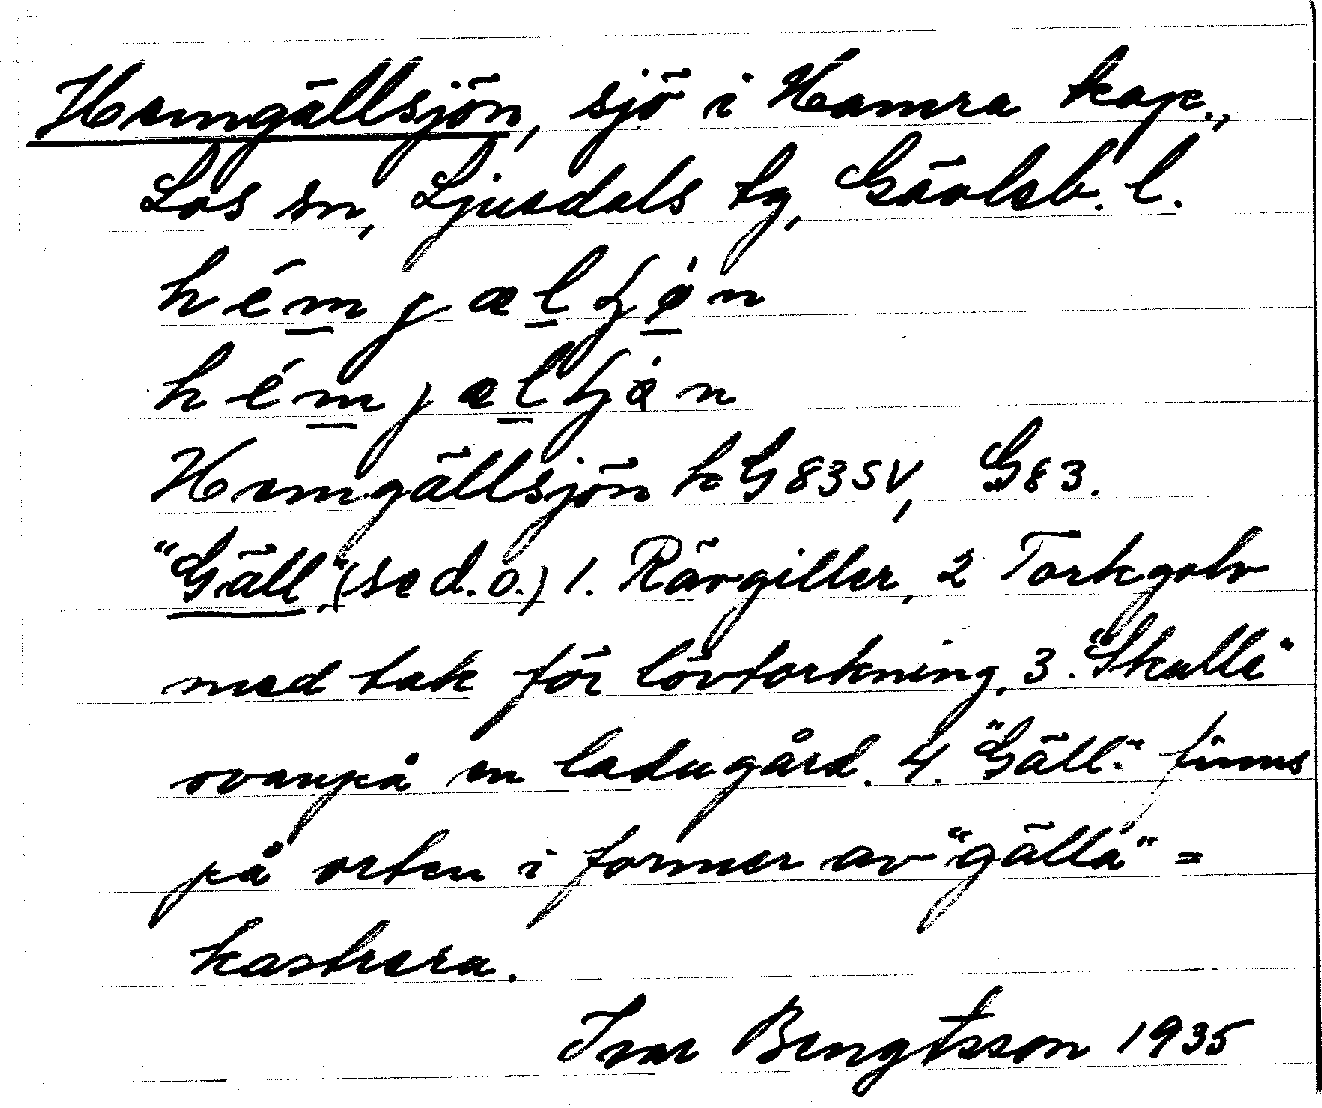 Hemgällsjön, sjö i Hamra kap.,
Los sn, Ljusdals tg, Gävleb. l.
hémjælʃȯn
hémjælʃȧn
Hemgällsjön k G83SV, G83.
"Gäll" (se d.o.) 1. Rävgiller, 2 Torkgolv
med tak för lövtorkning, 3. "Skulle"
ovanpå en ladugård. 4. "Gäll" finns
på orten i former av "gälla" =
kastrera.
Ivar Bengtsson 1935